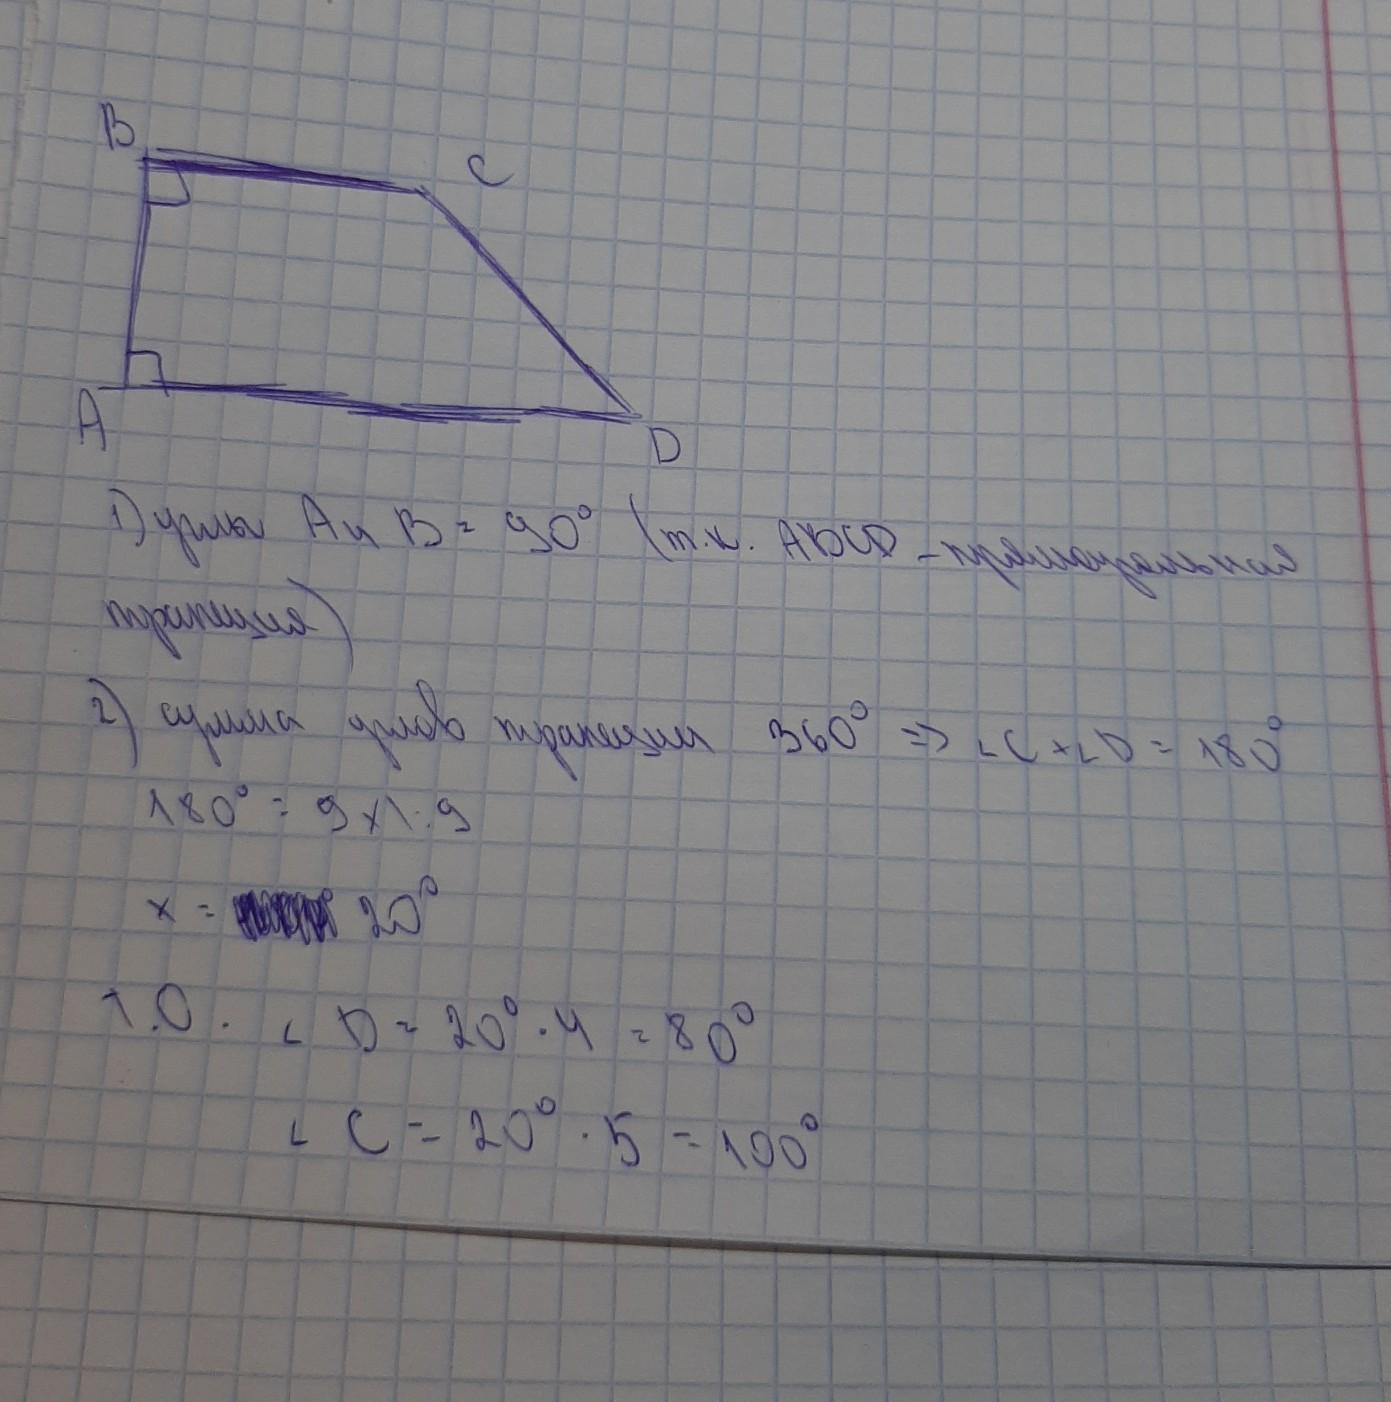 B
C
A
D
1) углы A и B = 90° (т.к. ABCD - прямоугольная
трапеция)
2) сумма углов трапеции 360° => ∠C + ∠D = 180°
180° = 9x |: 9
x = 20°
Т.О. ∠D = 20° · 4 = 80°
∠C = 20° · 5 = 100°